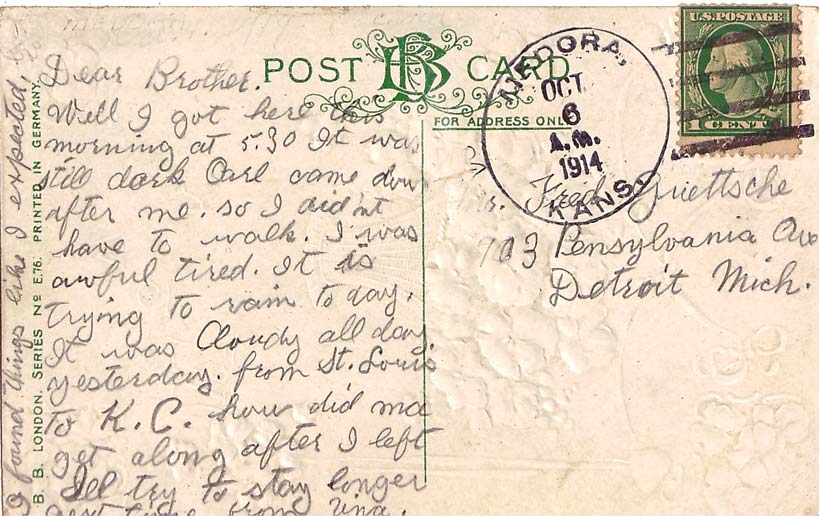 POST CARD
BB
FOR ADDRESS ONLY
U.S. POSTAGE
1 CENT
MEDORA,
OCT
6
A.M.
1914
KANS.
Dear Brother.
Well I got here this
morning at 5.30 It was
still dark Carl came down
after me. so I did'nt
have to walk. I was
awful tired. It is
trying to rain to day.
It was Cloudy all day.
yesterday. from St. Louis
to K.C. how did ma
get along after I left
Ill try to stay longer
next time from
I found things like I expected,
B. B. LONDON. SERIES No E.76. PRINTED IN GERMANY.
Fred Griettsche
703 Pensylvania Ave
Detroit Mich.